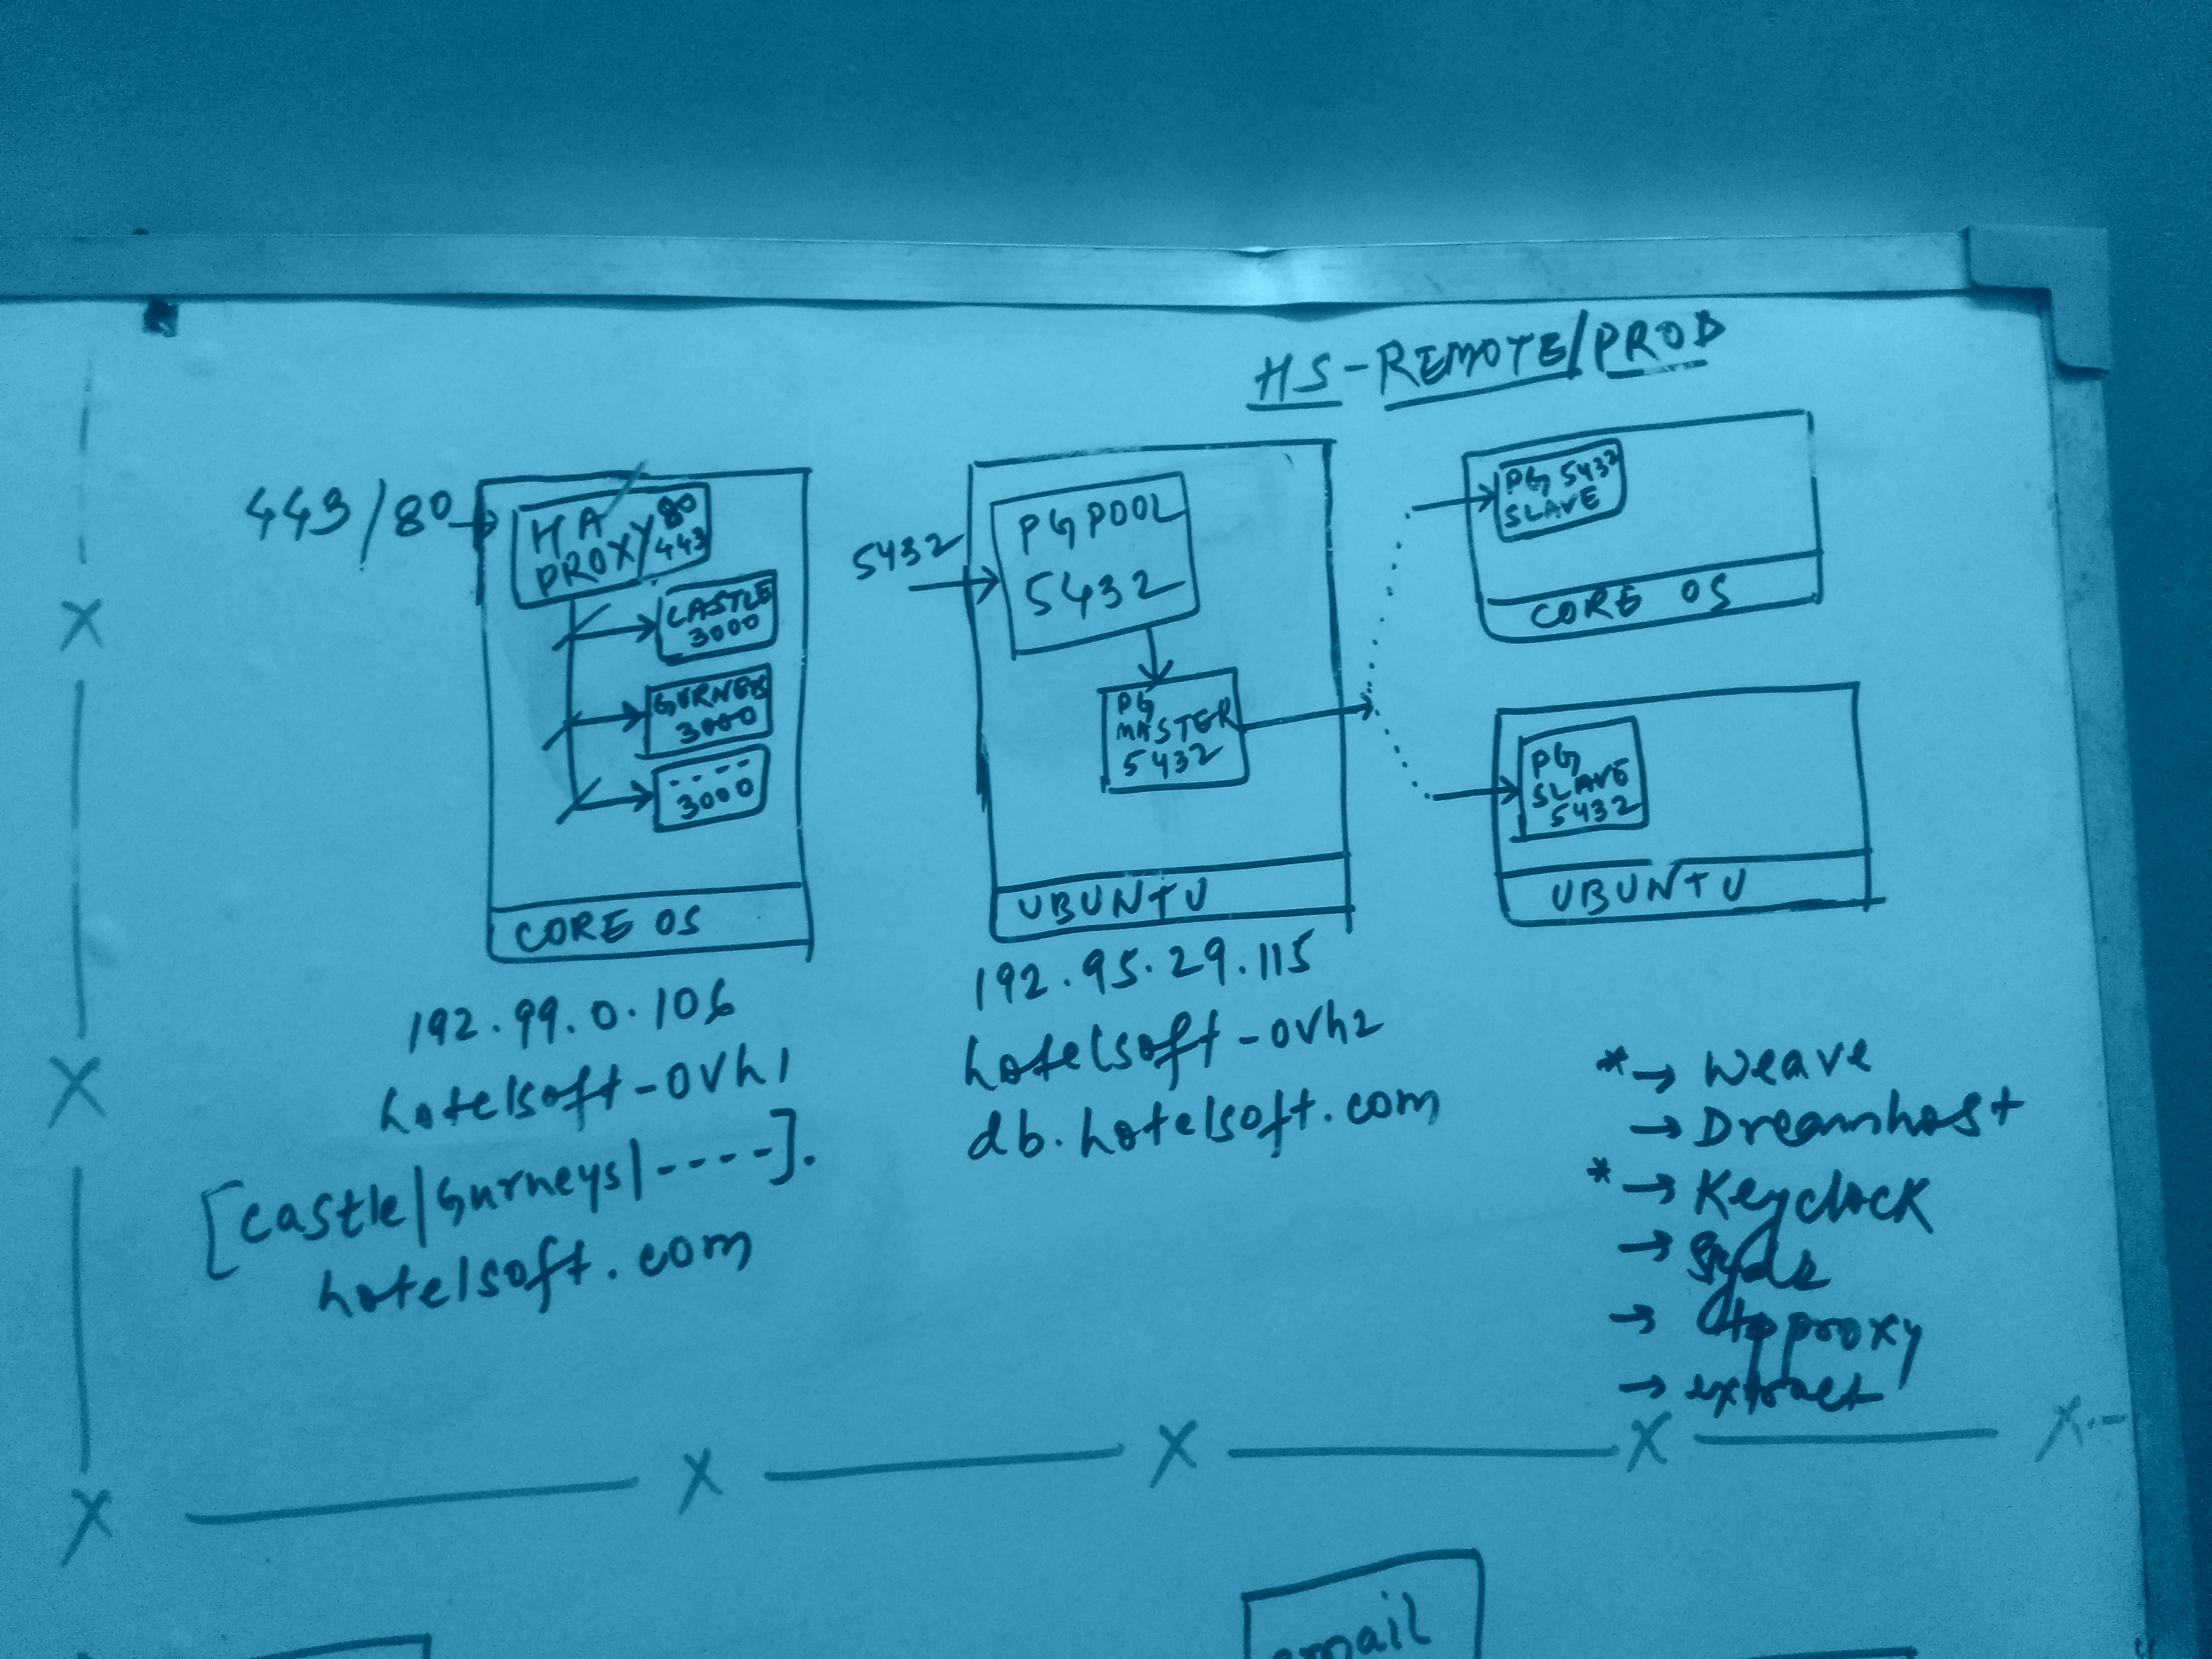 HS-REMOTE/PROD
443/80
HA 80
PROXY 443
CASTLE
3000
GURNEYS
3000
----
3000
CORE OS
192.99.0.106
hotelsoft-ovh1
[castle/gurneys/----].
hotelsoft.com
5432
PGPOOL
5432
PG
MASTER
5432
UBUNTU
192.95.29.115
hotelsoft-ovh2
db.hotelsoft.com
PG 5432
SLAVE
CORE OS
PG
SLAVE
5432
UBUNTU
*→ Weave
→ Dreamhost
*→ Keyclock
→
→ proxy
→ extract
email